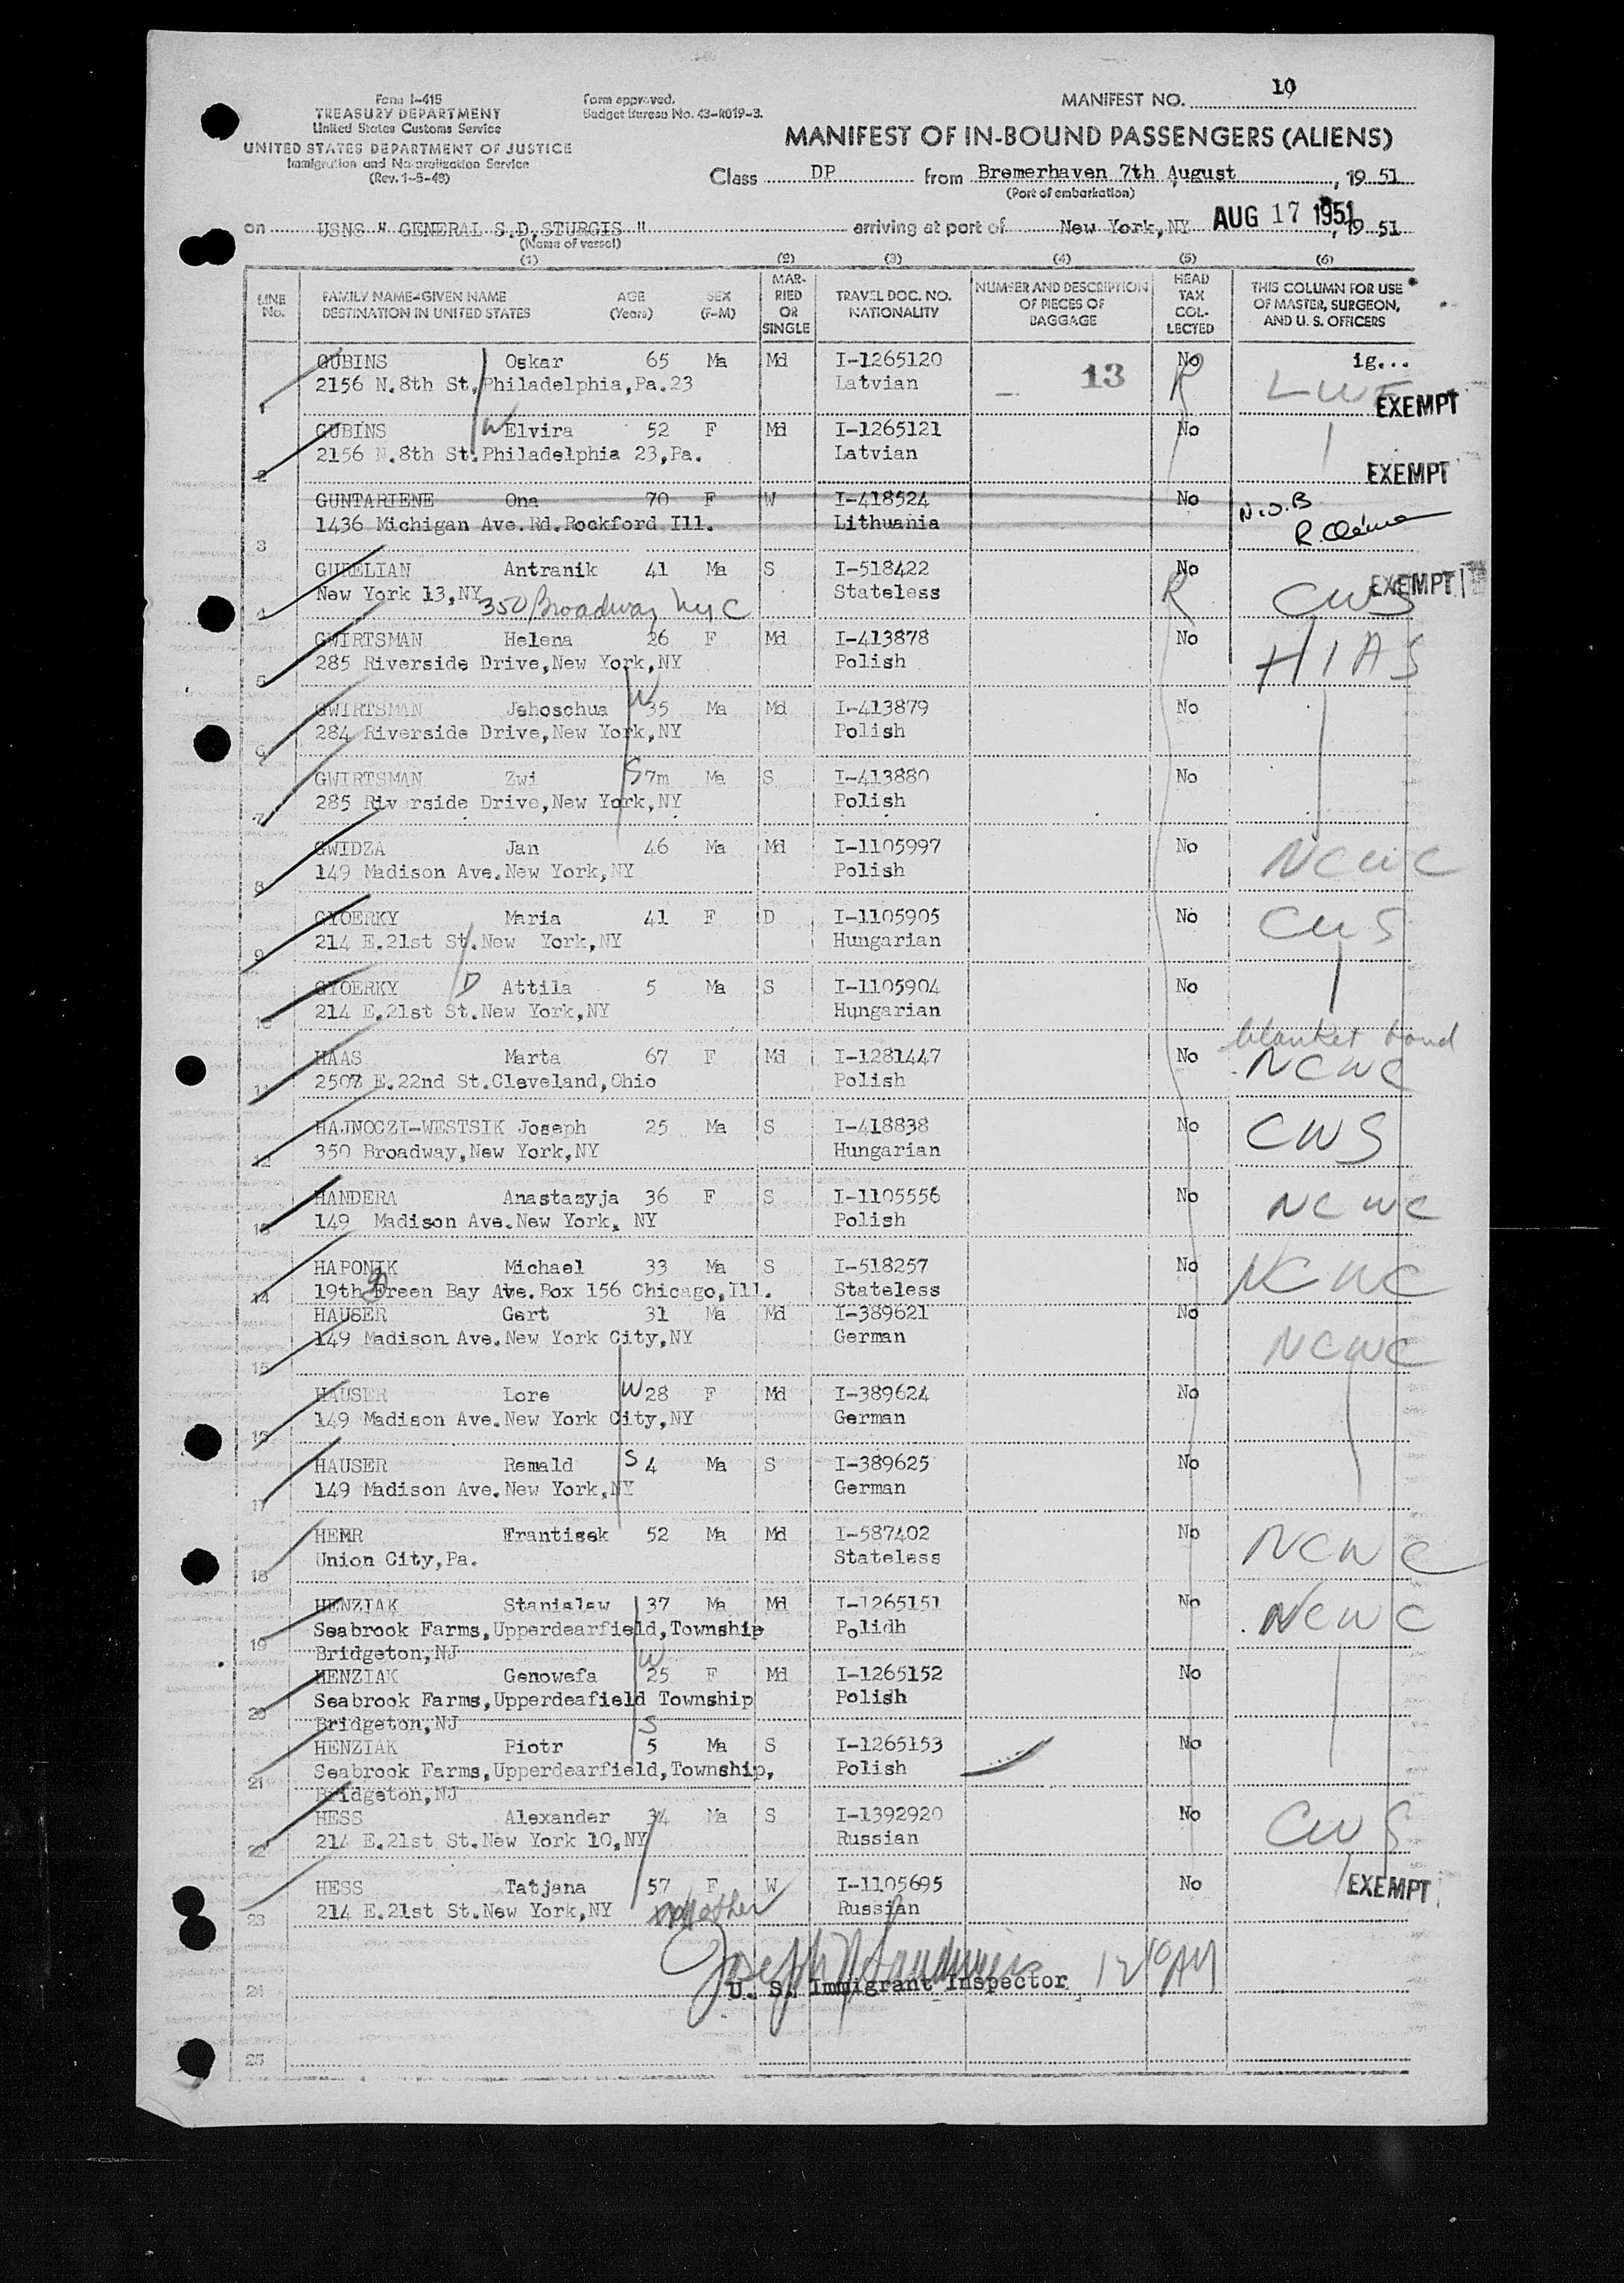 Form I-415
TREASURY DEPARTMENT
United States Customs Service
UNITED STATES DEPARTMENT OF JUSTICE
Immigration and Naturalization Service
(Rev. 1-5-48)
Form approved.
Budget Bureau No. 43-R019-3.
MANIFEST NO. 10
MANIFEST OF IN-BOUND PASSENGERS (ALIENS)
Class DP from Bremerhaven 7th August, 19 51
(Port of embarkation)
on USNS " GENERAL S.D.STURGIS " arriving at port of New York,NY AUG 17 1951, 19 51
(Name of vessel)
(1) (2) (3) (4) (5) (6)
LINE No. FAMILY NAME-GIVEN NAME DESTINATION IN UNITED STATES AGE (Years) SEX (F-M) MARRIED OR SINGLE TRAVEL DOC. NO. NATIONALITY NUMBER AND DESCRIPTION OF PIECES OF BAGGAGE HEAD TAX COLLECTED THIS COLUMN FOR USE OF MASTER, SURGEON, AND U. S. OFFICERS
GUBINS Oskar 65 Ma Md I-1265120 13 No ig...
1 2156 N.8th St.Philadelphia,Pa.23 Latvian R LWF EXEMPT
GUBINS W Elvira 52 F Md I-1265121 No
2 2156 N.8th St.Philadelphia 23,Pa. Latvian EXEMPT
GUNTARIENE Ona 70 F W I-418524 No N.O.B
3 1436 Michigan Ave.Rd.Rockford Ill. Lithuania R.
GURELIAN Antranik 41 Ma S I-518422 No EXEMPT
4 New York 13,NY 350 Broadway NYC Stateless R CWS
GWIRTSMAN Helena 26 F Md I-413878 No HIAS
5 285 Riverside Drive,New York,NY Polish
GWIRTSMAN Jehoschua W 35 Ma Md I-413879 No
6 284 Riverside Drive,New York,NY Polish
GWIRTSMAN Zwi S 7m Ma S I-413880 No
7 285 Riverside Drive,New York,NY Polish
GWIDZA Jan 46 Ma Md I-1105997 No NCWC
8 149 Madison Ave.New York,NY Polish
GYOERKY Maria 41 F D I-1105905 No CWS
9 214 E.21st St.New York,NY Hungarian
GYOERKY D Attila 5 Ma S I-1105904 No
10 214 E.21st St.New York,NY Hungarian
HAAS Marta 67 F Md I-1281447 No blanket bond
11 2507 E.22nd St.Cleveland,Ohio Polish NCWC
HAJNOCZI-WESTSIK Joseph 25 Ma S I-418838 No CWS
12 350 Broadway,New York,NY Hungarian
HANDERA Anastazyja 36 F S I-1105556 No NCWC
13 149 Madison Ave.New York, NY Polish
HAPONIK Michael 33 Ma S I-518257 No NCWC
14 19th Green Bay Ave.Box 156 Chicago,Ill. Stateless
HAUSER Gert 31 Ma Md I-389621 No
15 149 Madison Ave.New York City,NY German NCWC
HAUSER Lore W 28 F Md I-389624 No
16 149 Madison Ave.New York City,NY German
HAUSER Remald S 4 Ma S I-389625 No
17 149 Madison Ave.New York,NY German
HEMR Frantisek 52 Ma Md I-587402 No NCWC
18 Union City,Pa. Stateless
HENZIAK Stanislaw 37 Ma Md I-1265151 No NCWC
19 Seabrook Farms,Upperdearfield,Township Polidh
Bridgeton,NJ W
HENZIAK Genowefa 25 F Md I-1265152 No
20 Seabrook Farms,Upperdeafield Township Polish
Bridgeton,NJ S
HENZIAK Piotr 5 Ma S I-1265153 No
21 Seabrook Farms,Upperdearfield,Township, Polish
Bridgeton,NJ
HESS Alexander 34 Ma S I-1392920 No CWS
22 214 E.21st St.New York 10,NY Russian
HESS Tatjana 57 F W I-1105695 No EXEMPT
23 214 E.21st St.New York,NY mother Russian
Joseph
24 U. S. Immigrant Inspector 12 10 AM
25